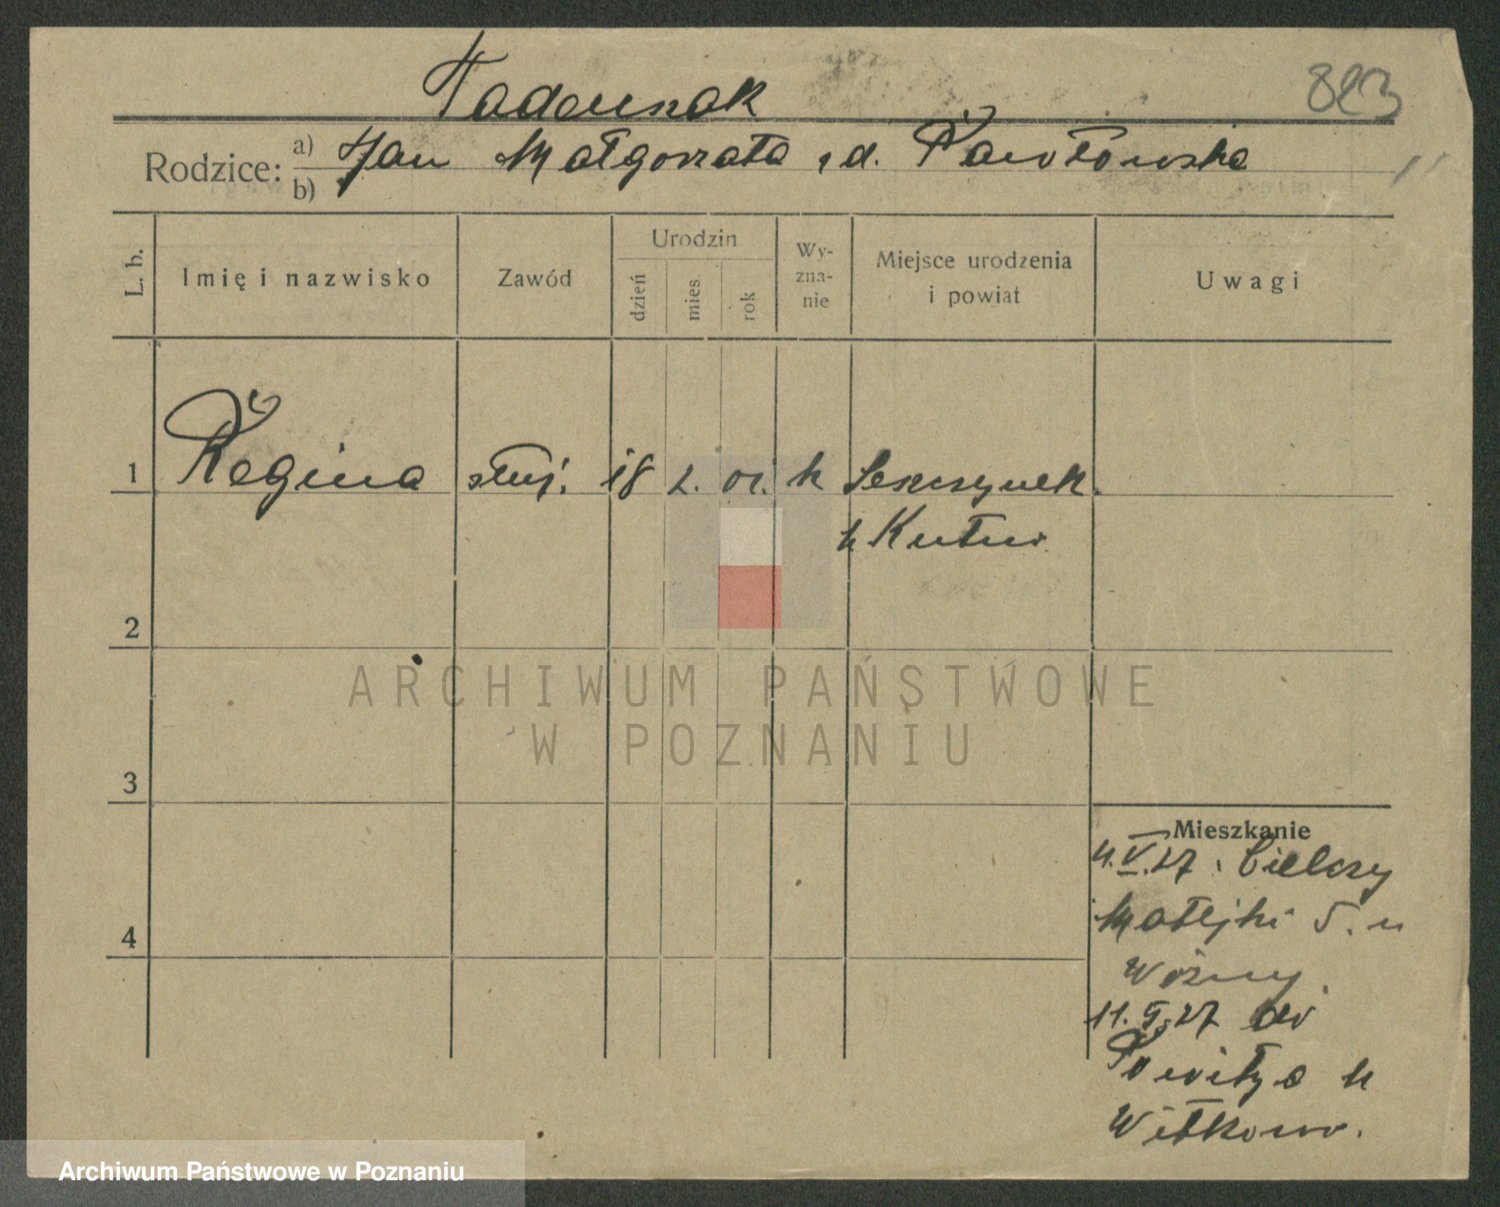 Tadeuszak
823
Rodzice: a) Jan Małgorzata z d. Pawłowska
b)
L. b. Imię i nazwisko Zawód Urodzin dzień mies rok Wy-zna-nie Miejsce urodzenia i powiat Uwagi
1 Regina służ. 18 2. 01. k
p Kutno
2
ARCHIWUM PAŃSTWOWE
W POZNANIU
3
Mieszkanie
4.V.27. Bielczy
Matejki 5. u
4
Woźny.
11.5.27 do
Powidza p
Witkowo.
Archiwum Państwowe w Poznaniu